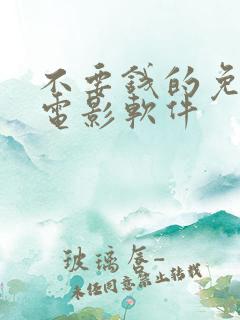 不要錢的免
電影軟件
玻璃唇-
未经同意禁止转载